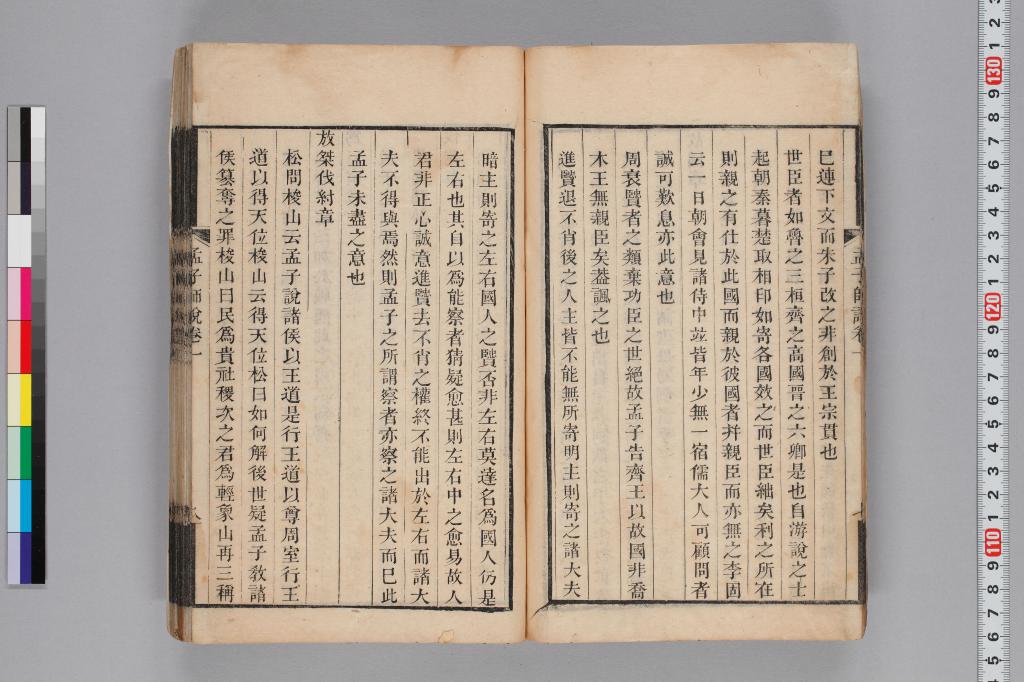 已連下文而朱子改之非創於王宗貫也
世臣者如魯之三桓齊之高國晉之六卿是也自游說之士
起朝秦暮楚取相印如寄各國效之而世臣絀矣利之所在
則親之有仕於此國而親於彼國者并親臣而亦無之李固
云一日朝會見諸侍中並皆年少無一宿儒大人可顧問者
誠可歎息亦此意也
周衰賢者之類棄功臣之世絕故孟子告齊王以故國非喬
木王無親臣矣蓋諷之也
進賢退不肖後之人主皆不能無所寄明主則寄之諸大夫
暗主則寄之左右國人之賢否非左右莫達名為國人仍是
左右也其自以為能察者猜疑愈甚則左右中之愈易故人
君非正心誠意進賢去不肖之權終不能出於左右而諸大
夫不得與焉然則孟子之所謂察者亦察之諸大夫而已此
孟子未盡之意也
放桀伐紂章
松問梭山云孟子說諸侯以王道是行王道以尊周室行王
道以得天位梭山云得天位松曰如何解後世疑孟子教諸
侯篡奪之罪梭山曰民為貴社稷次之君為輕象山再三稱
孟子師說卷一
八